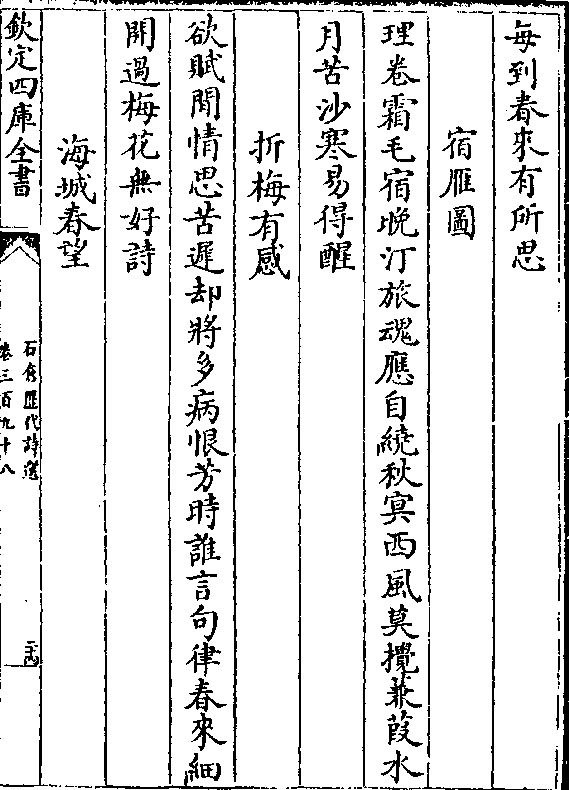 每到春來有所思
宿雁圖
理卷霜毛宿晚汀旅魂應自繞秋㝠西風莫攪蒹葭水
月苦沙寒易得醒
折梅有感
欲賦閒情思苦遲却將多病恨芳時誰言句律春來細
開過梅花無好詩
海城春望
欽定四庫全書
石倉歷代詩選
卷三百九十八
二十四